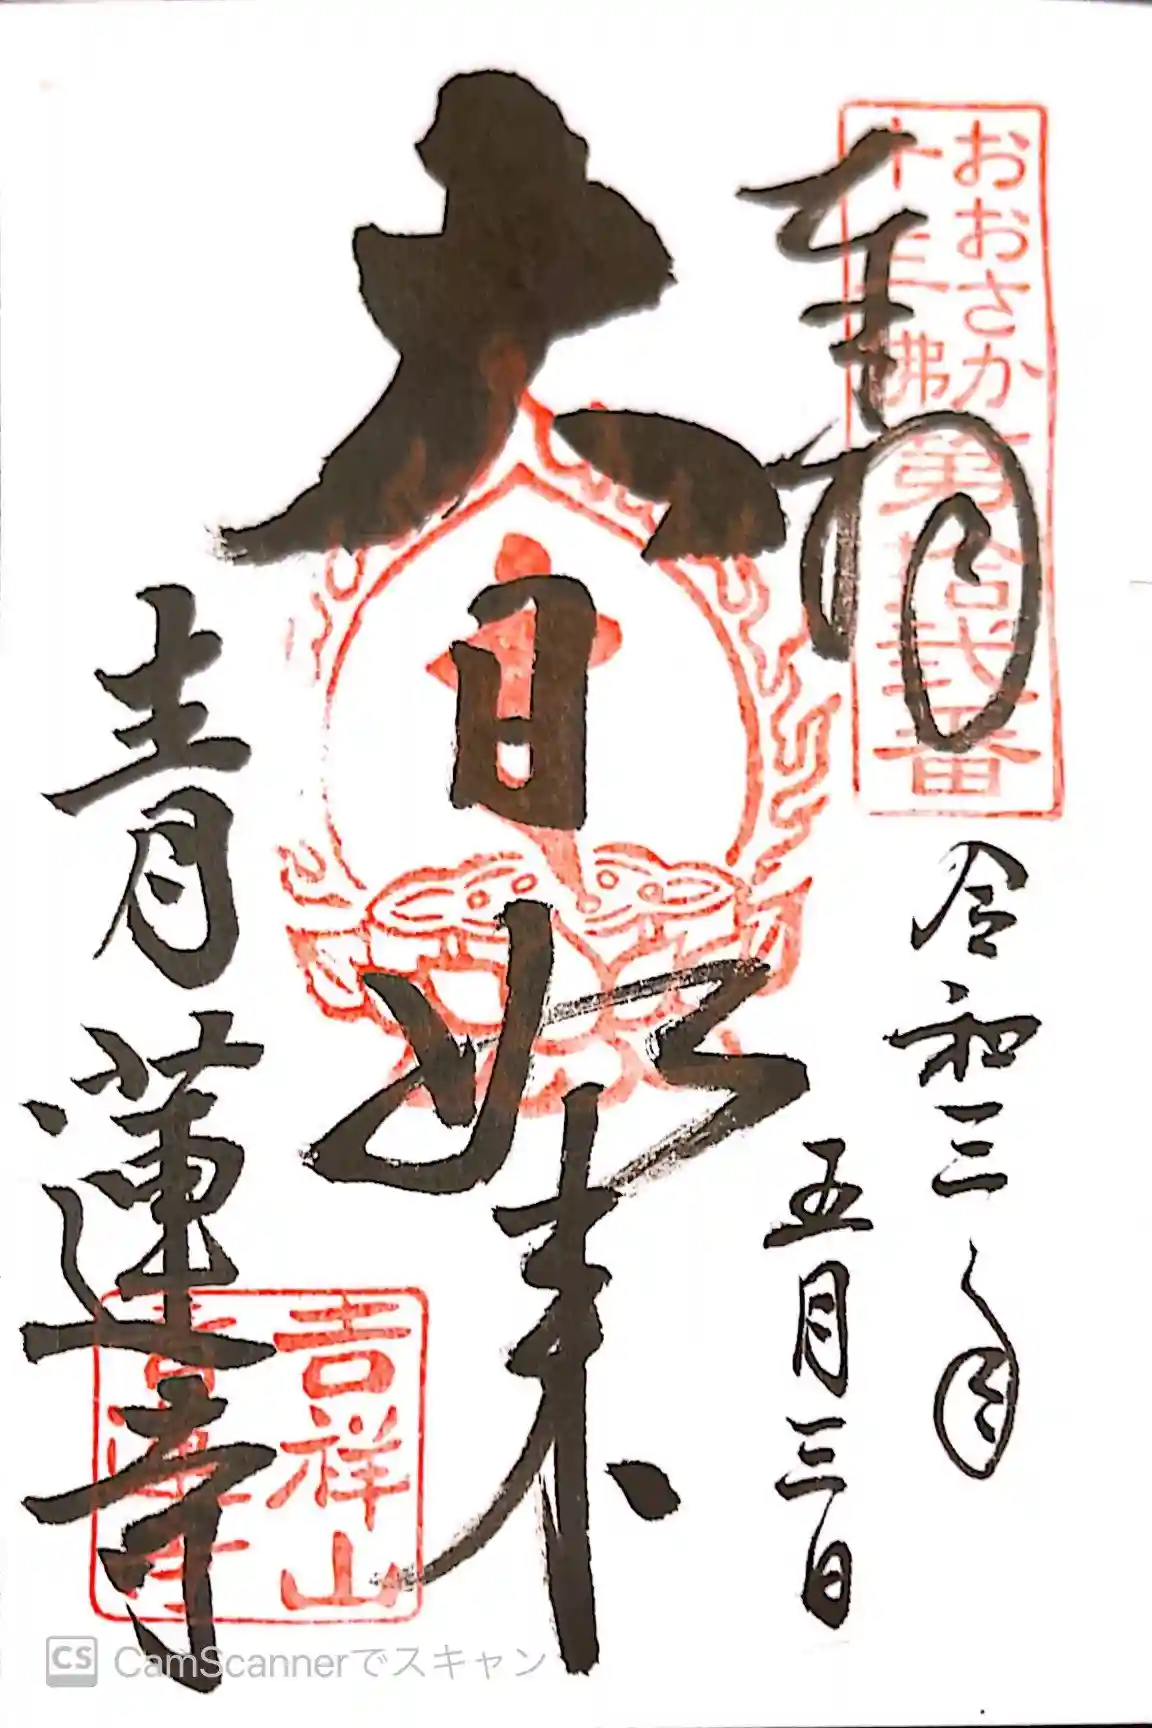 奉拝
おおさか
十三佛
第拾弐番
令和三年
五月三日
大日如来
青蓮寺
吉祥山
青蓮寺
CS CamScannerでスキャン